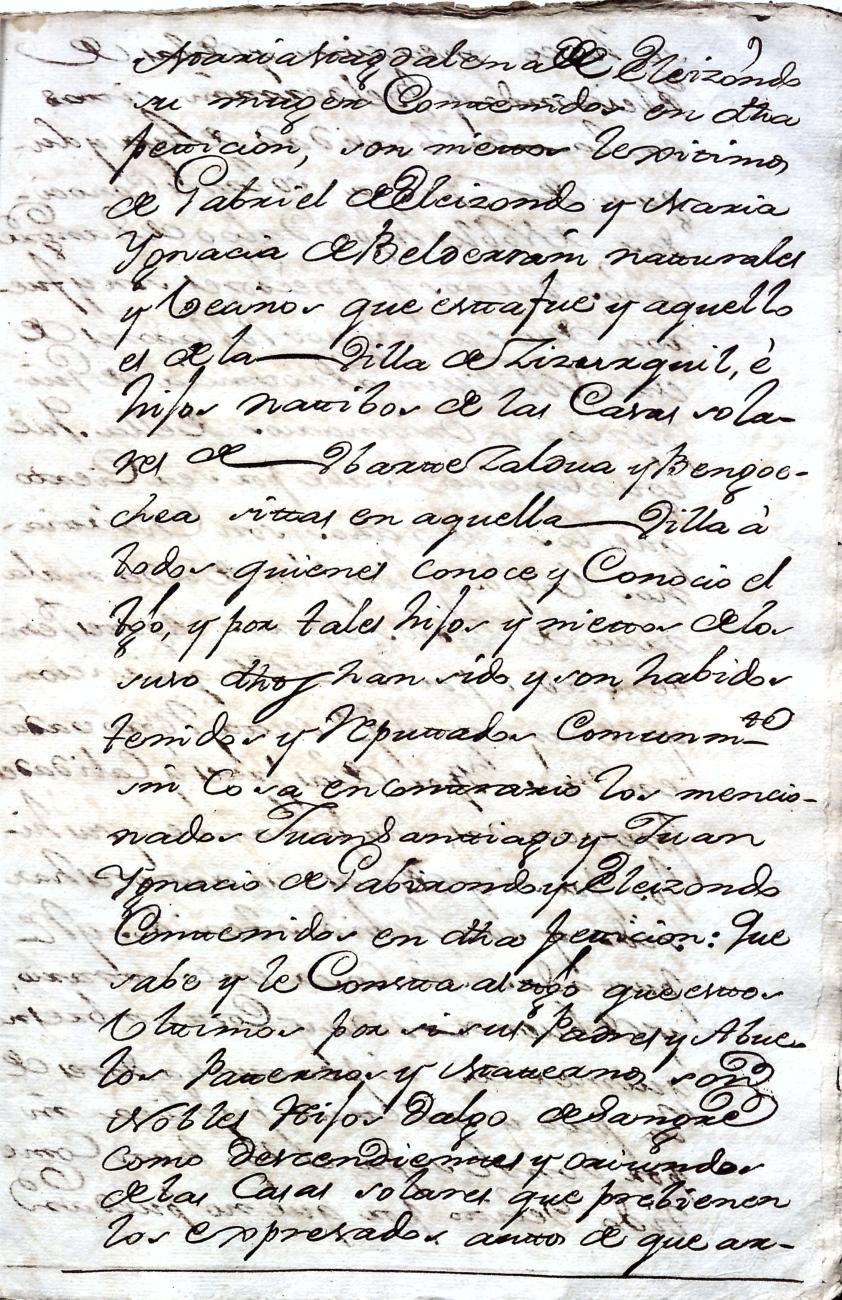 Maria Magdalena de Eleizondo
su muger Contenidos en dha
petticion, son niettos lexitimos
de Gabriel de Eleizondo y Maria
Ygnacia de Belderrain natturales
y Vecinos que estta fue y aquel lo
es de la Villa de Zizurquil, è
hijos nattibos de las Casas sola-
res de Ybartte Zaldua y Bengoe-
chea sittas en aquella Villa à
todos quienes conoce y Conocio el
tgo, y por tales hijos y niettos de los
suso dhos han sido y son habidos
tenidos y Reputtados Comunmto
sin Cosa en conttrario los mencio-
nados Juan Santtiago y Juan
Ygnacio de Gabirondo y Eleizondo
Conttenidos en dha petticion: Que
sabe y le Constta al tgo que esttos
Ultimos por si sus Padres y Abue-
los Patternos y Matternos son
Nobles Hijos Dalgo de Sangre
como descendienttes y oriundos
de las Casas solares que probienen
los expresados autto de que ar-